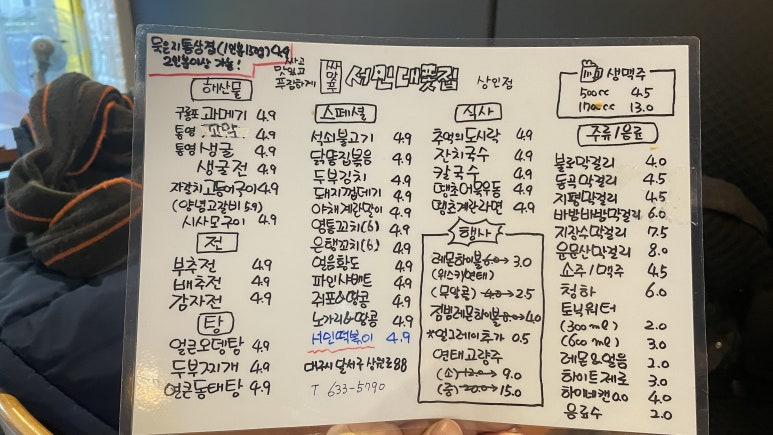 묵은지통삼겹(1인분150g) 4.9
2인분이상 가능!
싸고
맛있고
푸짐하게
서민대폿집 상인점
해산물
구룡포 과메기 4.9
통영 4.9
통영 생굴 4.9
생굴전 4.9
자갈치고등어구이 4.9
(양념고갈비 5.9)
시사모구이 4.9
전
부추전 4.9
배추전 4.9
감자전 4.9
탕
얼큰오뎅탕 4.9
두부찌개 4.9
얼큰동태탕 4.9
스페셜
석쇠불고기 4.9
닭똥집볶음 4.9
두부김치 4.9
돼지껍데기 4.9
야채계란말이 4.9
염통꼬치(6) 4.9
은행꼬치(6) 4.9
얼음황도 4.9
파인샤베트 4.9
쥐포&땅콩 4.9
노가리&땅콩 4.9
서민떡볶이 4.9
대구시 달서구 상원로88
T 633-5790
식사
추억의도시락 4.9
잔치국수 4.9
칼국수 4.9
땡초어묵우동 4.9
땡초계란라면 4.9
행사
레몬하이볼 6.0→3.0
(위스키면태)
(무알콜) 4.0→2.5
점벙레몬하이볼 8.0→4.0
*얼그레이추가 0.5
연태고량주
(소) 12.0→9.0
(중) 20.0→15.0
생맥주
500cc 4.5
1700cc 13.0
주류/음료
불로막걸리 4.0
동곡막걸리 4.5
지평막걸리 4.5
바밤바밤막걸리 6.0
지장수막걸리 7.5
운문산막걸리 8.0
소주/맥주 4.5
청하 6.0
토닉워터
(300ml) 2.0
(600ml) 3.0
레몬&얼음 2.0
하이트제로 3.0
하이네캔0.0 4.0
음료수 2.0